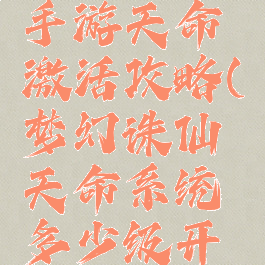 手游天命
激活攻略(
梦幻诛仙
天命系统
多少级开